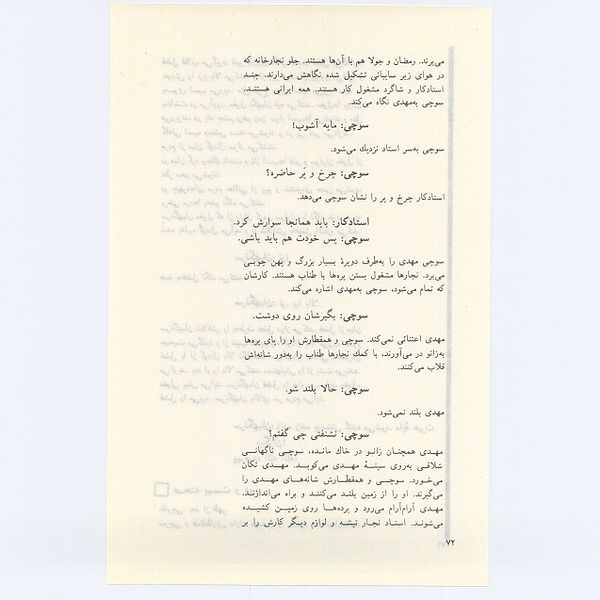 می‌برند. رمضان و جولا هم با آن‌ها هستند. جلو نجارخانه که
در هوای زیر سایبانی تشکیل شده نگاهش می‌دارند. چند
استادکار و شاگرد مشغول کار هستند. همه ایرانی هستند.
سوچی به‌مهدی نگاه می‌کند.
سوچی: مایه آشوب!
سوچی به‌سر استاد نزدیك می‌شود.
سوچی: چرخ و پَر حاضره؟
استادکار چرخ و پر را نشان سوچی می‌دهد.
استادکار: باید همانجا سوارش کرد.
سوچی: پس خودت هم باید باشی.
سوچی مهدی را به‌طرف دوپرهٔ بسیار بزرگ و پهن چوبـی
می‌برد. نجارها مشغول بستن پره‌ها با طناب هستند. کارشان
که تمام می‌شود، سوچی به‌مهدی اشاره می‌کند.
سوچی: بگیرشان روی دوشت.
مهدی اعتنائی نمی‌کند. سوچی و همقطارش او را پای پره‌ها
به‌زانو در می‌آورند، با کمك نجارها طناب را به‌دور شانه‌اش
قلاب می‌کنند.
سوچی: حالا بلند شو.
مهدی بلند نمی‌شود.
سوچی: نشنفتی چی گفتم؟
مهـدی همچنان زانـو در خاك مانـده، سوچـی ناگهانـی
شلاقـی به‌روی سینـهٔ مهـدی می‌کوبـد. مهـدی تکان
می‌خورد. سوچـی و همقطـارش شانه‌هـای مهـدی را
می‌گیرند. او را از زمین بلند می‌کننـد و براه می‌اندازنـد.
مهدی آرام‌آرام می‌رود و پرده‌هـا روی زمیـن کشیـده
می‌شونـد. استاد نجار تیشـه و لوازم دیگـر کارش را بر
۷۲